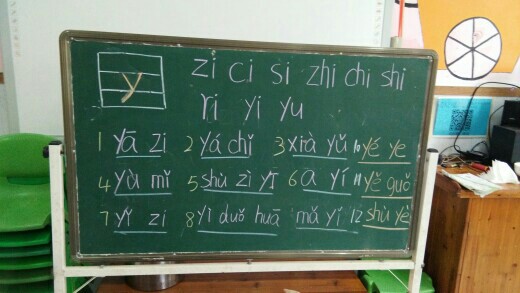 y zi ci si zhi chi shi
ri yi yu
1 yā zi 2 yá chǐ 3 xià yǔ 10 yé ye
4 yù mǐ 5 shù zì yī 6 a yí 11 yě guǒ
7 yǐ zi 8 yì duǒ huā mǎ yǐ 12 shù yè